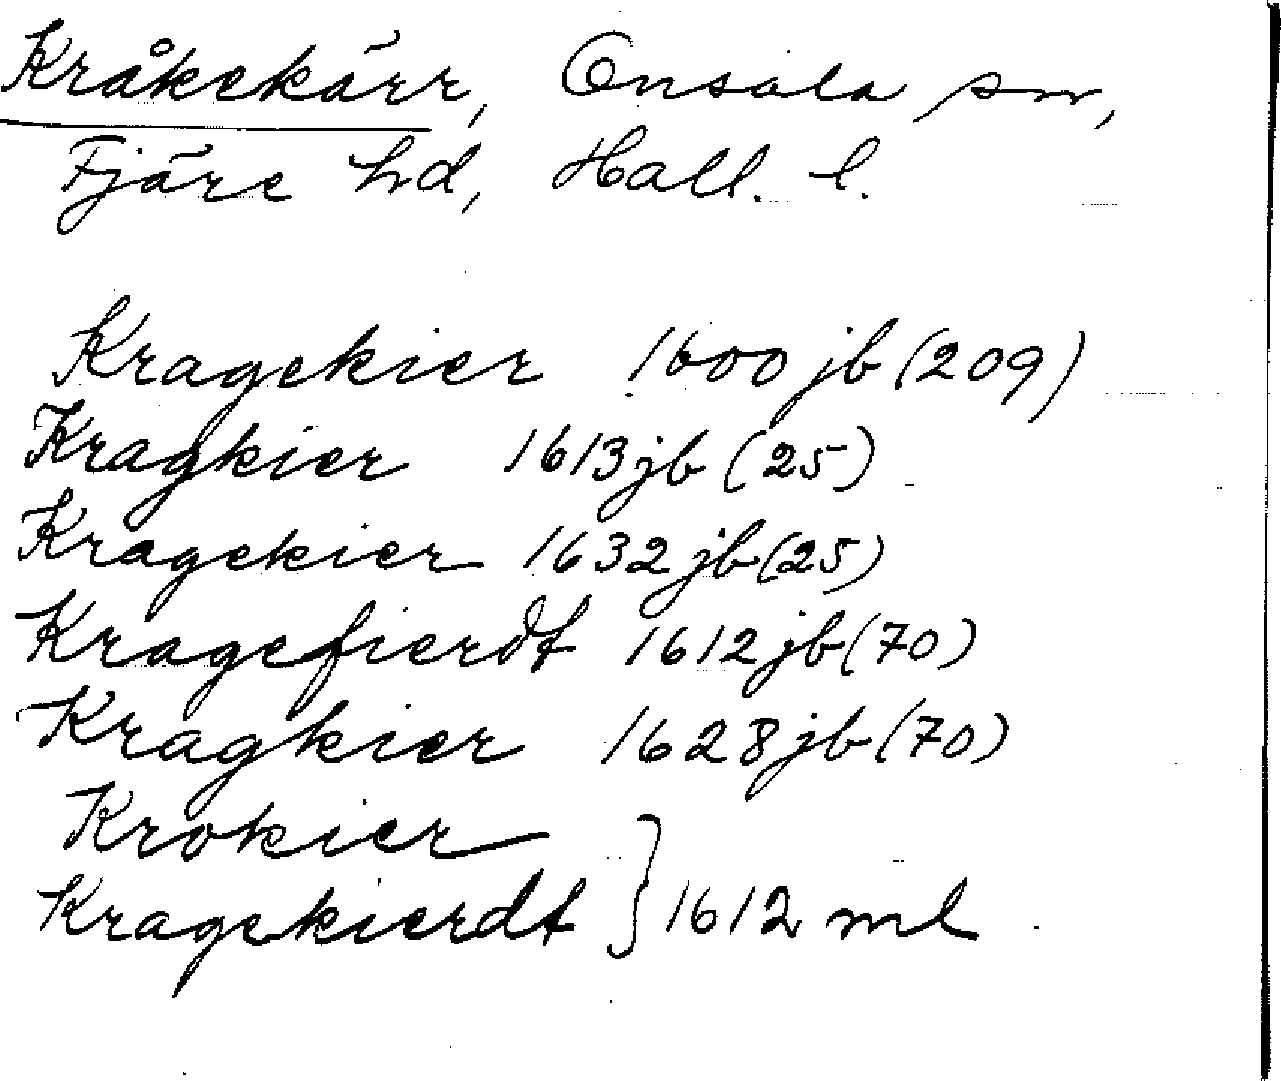 Kråkekärr, Onsala sn,
Fjäre hd, Hall. l.
Kragekier 1600 jb (209)
Kragkier 1613 jb (25)
Kragekier 1632 jb (25)
Kragefierdt 1612 jb (70)
Kragkier 1628 jb (70)
Krokier
Kragekierdt } 1612 ml